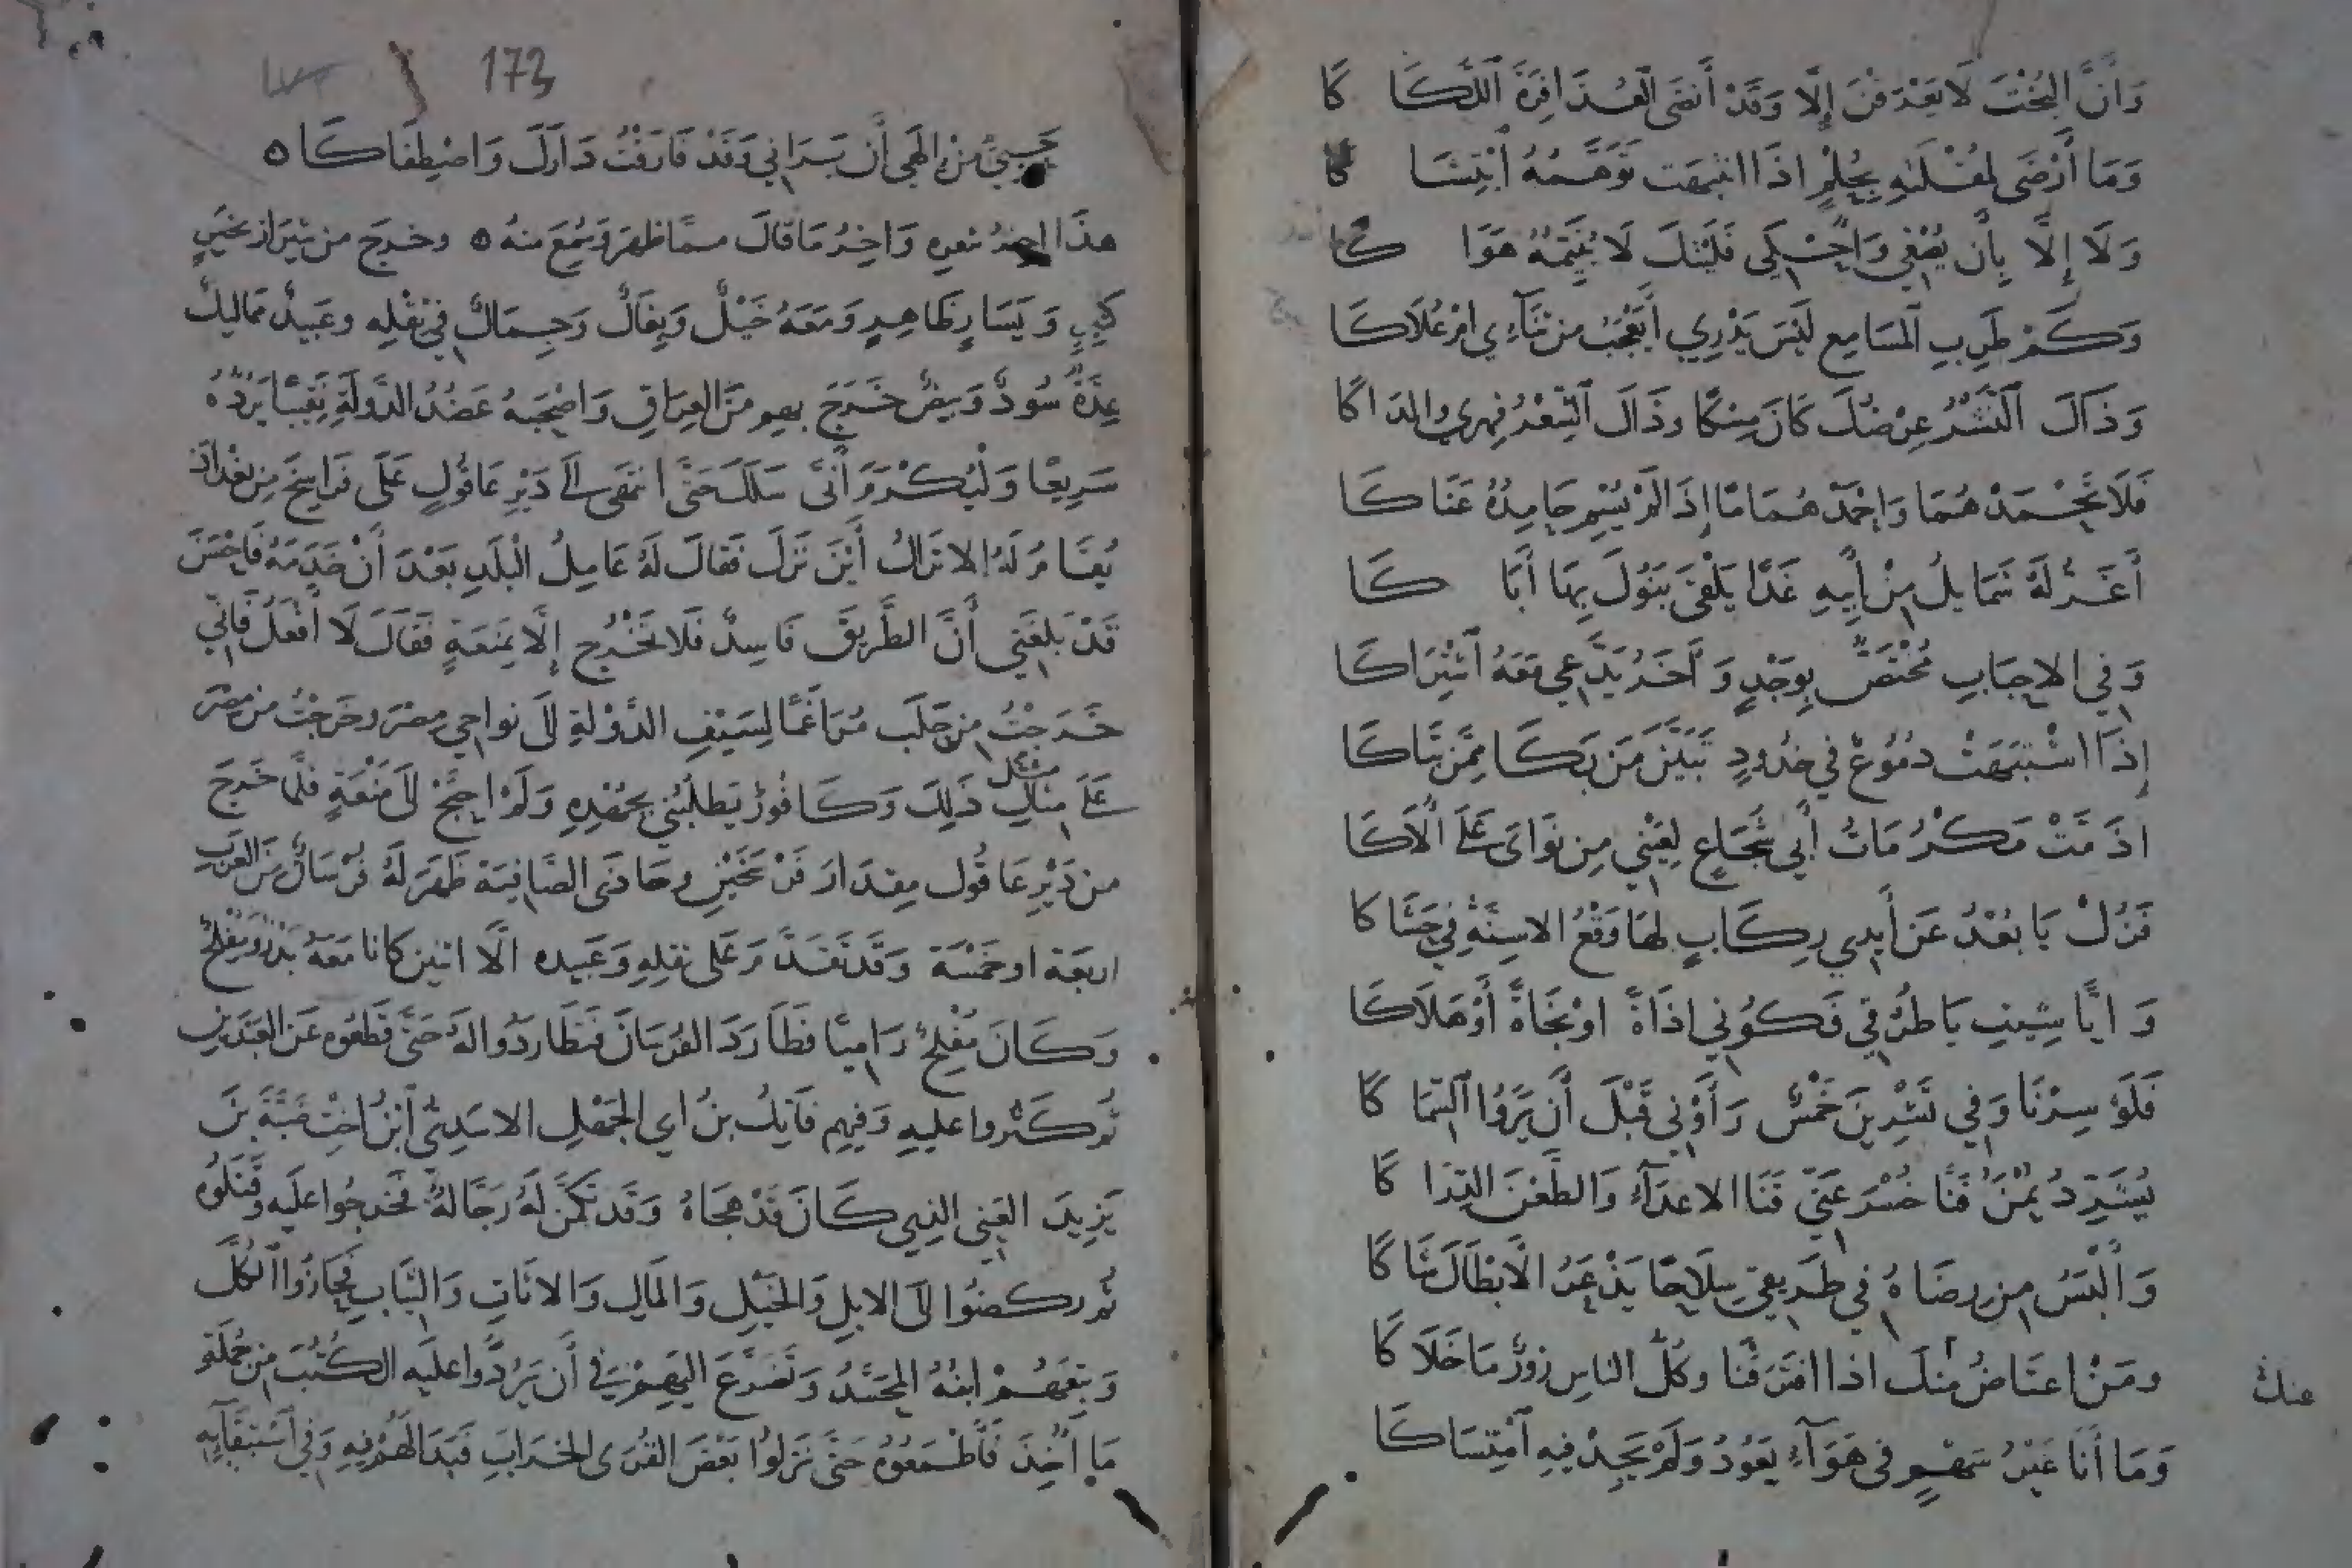 وَانَّ البُخْتَ لَا يَعْرَقْنَ إِلَّا وَقَدْ أَنضَى العُذَافِرَةَ اللِّكَاكَا
وَمَا أَرْضَى لِمُقْلَتِهِ بِحُلْمٍ اذَا انتَبَهَت تَوَهَّمُهُ ابْتِشَاكَا
وَلَا إِلَّا بِأَن يُصْغِي وَاحْكِي فَلَيْتَكَ لَا يُتَيِّمُهُ هَوَاكَا
وَكَمْ طَرِبِ المَسَامِعِ لَيْسَ يَدْرِي أَيَعْجَبُ مِنْ ثَنَاءِي امْ عُلَاكَا
وَذَاكَ النَّشْرُ عِرْضُكَ كَانَ مِسْكًا وذَاكَ الشِّعْرُ فِهرِي والمدَاكَا
فَلَا تَحْمَدْهُمَا وَاحْمَدْ هُمَامًا إِذَا لَمْ يُسْمِ حَامِدُهُ عَنَاكَا
أَغَرُّ لَهُ شَمَايِلُ مِنْ أَبِيهِ غَدًا يَلْقَى بَنُوكَ بِهَا أَبَاكَا
وَفِي الاحبَابِ مُخْتَصٌّ بِوَجْدٍ وَآخَرُ يَدَّعِي مَعَهُ اشْتِرَاكَا
إِذَا اشْتَبَهَتْ دمُوعٌ فِي خدُودٍ تَبَيَّنَ مَن بَكَا مِمَّن تَبَاكَا
اذَمَّتْ مَكْرُمَاتُ أَبِي شُجَاعٍ لِعَيْنِي مِن نَوَاىَ عَلَى الَاكَا
فَزُلْ يَا بُعْدُ عَن أَيدِي رِكَابٍ لهَا وَقْعُ الاسِنَّةِ فِي حَشَاكَا
وَايًّا شِيتِ يَا طُرُقِي فَكُونِي اذَاةً اوْ نَجَاةً أَوْ هَلَاكَا
فَلَوْ سِرْنَا وَفِي تَشْرِينَ خَمْسٌ رَأَوْنِي قَبْلَ أَن يَرَوُا السِّمَاكَا
يُشَرِّدُ يُمْنُ فَنَّاخُسْرَ عَنِّي قَنَا الاعدَآءِ وَالطَّعْنَ الدِّرَاكَا
وَأَلْبَسُ مِن رِضَاهُ فِي طَرِيقِي سِلَاحًا يَذْعَرُ الَابْطَالَ شَاكَا
ومَنْ اعتَاضُ مِنكَ اذا افتَرَقْنَا وكُلُّ الناسِ زورٌ مَا خَلَاكَا
عنك
وَمَا أَنَا غَيْرُ سَهْمٍ فِي هَوَآءٍ يَعُودُ وَلَمْ يَجِدْ فِيهِ امْتِسَاكَا
173
حَيِيٌّ مِنْ إلَهِي أَن يَرَانِي وَقَدْ فَارَقْتُ دَارَكَ وَاصْطِفَاكَا ٥
هذَا اخرُ شعرِهِ وَاخِرُ مَا قَالَ مـمَّا ظهرَ وَسُمِعَ منهُ ٥ وخرجَ من شيرَاز بخَيرٍ
كثِيرٍ وَيَسَارٍ ظَاهِرٍ وَمَعَهُ خَيْلٌ وَبِغَالٌ وَجِمَالٌ فِي ثِقْلِهِ وعَبِيدٌ مَمَاليكُ
عِدَّةٌ سُودٌ وَبِيضٌ خَرَجَ بهمِ مِنَ العِرَاقِ وَاصْحَبَهُ عَضُدُ الدَّولَةِ نَقِيبًا يَرُدُّهُ
سَرِيعًا وَلْيُكْرَمْ وَأَنَّى سَلَكَ حَتَّى انتَهَى إِلَى دَيْرِ عَاقُولٍ عَلَى فَرَاسِخَ مِن بَغْدَاذَ
يُقَامُ لَهُ الانزَالُ أَيْنَ نَزَلَ فَقَالَ لَهُ عَامِلُ الْبَلَدِ بَعْدَ أَنْ خَدَمَهُ فَاحْسَنَ
قَدْ بَلَغَنِي أَنَّ الطَّرِيقَ فَاسِدٌ فَلَا تَخْرُج إِلَّا بِمَنَعَةٍ فَقَالَ لَا أَفْعَلُ فَاِنِّي
خَرَجْتُ مِن حَلَب مُرَاغَمًا لِسَيْفِ الدَّوْلةِ الَى نَوَاحِي مِصْرَ وخَرَجْتُ مِن مِصْرَ
عَلَى مثَالِ مثل ذَلِكَ وَكَافُورٌ يَطلُبُنِي بِحِقْدِهِ وَلَمْ احتَجْ الَى مَنَعَةٍ فلمَّا خَرَجَ
من دَيْرِ عَاقُولِ مِقدَارَ فَرْسَخَيْنِ وحَاذَى الصَّافِيَةَ ظَهَرَ لَهُ فُرْسَانٌ مِنَ العَرَبِ
اربَعَة او خمْسَة وَقَد تَقَدَّمَ عَلى ثقلِهِ وَعَبيدِه الَّا اثنينِ كَانا مَعَهُ بَدْرٌ وَمُفْلِحٌ
وَكَانَ مُفْلِحٌ رَامِيًا فَطَارَدَ الفُرسَانَ فَتَطَارَدُوا لهُ حَتَّى قَطَعُوه عَن العَبْدَينِ
ثُمَّ كَثُروا عليهِ وَفِيهِم فَاتِكُ بنُ ابي الجَهْلِ الاسَدِيُّ ابْنُ اخْتِ ضَبَّةَ بنَ
يَزِيدَ العَيْنِي الذِي كَانَ قَدْ هَجَاهُ وَقَد تَكَمَّنَ لَهُ رَجَّالةٌ فخرجُوا عليهِ وقَتَلُوهُ
ثُم ركضُوا الَى الابلِ وَالخَيْلِ وَالمَالِ وَالاثَاثِ وَالثِّيَابِ فحَازُوا الْكُلَّ
وَتبِعَهُمْ ابنُهُ المُحَسَّدُ وَتَضَرَّعَ اليهِمْ فِي أَن يَرُدُّوا عليهِ الكُتُبَ مِن جُمْلَةِ
مَا أُخِذَ فَأَطْمَعُوهُ حَتَّى نَزَلُوا بَعْضَ القُرَى الخَرَابِ فَبَدَا لَهُمْ فِيهِ وَفِي اسْتِبْقَآئِهِ